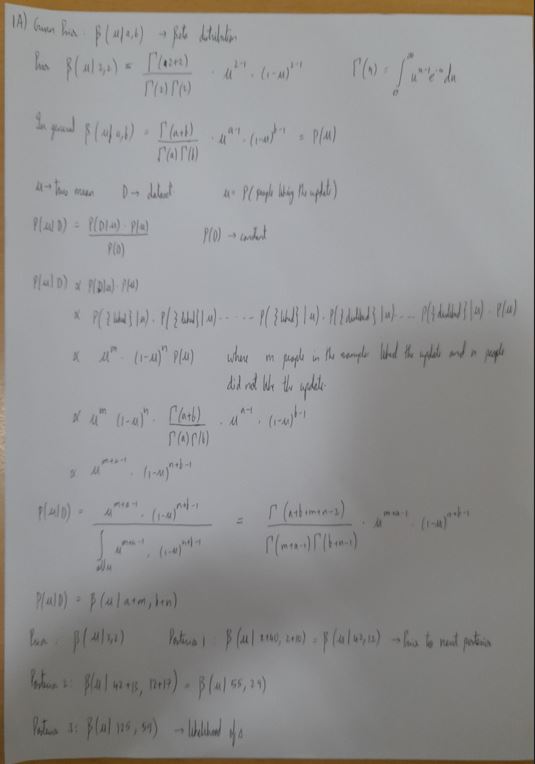 1A) Given Prior : β(μ|a,b) → Beta distribution
Prior β(μ|2,2) = Γ(2+2) / Γ(2)Γ(2) · μ^(2-1) · (1-μ)^(2-1)    Γ(n) = ∫_0^∞ u^(n-1) e^(-u) du
In general β(μ|a,b) = Γ(a+b) / Γ(a)Γ(b) · μ^(a-1) · (1-μ)^(b-1) = P(μ)
μ → true mean    D → dataset    μ = P(people liking the update)
P(μ|D) = P(D|μ) · P(μ) / P(D)    P(D) → constant
P(μ|D) ∝ P(D|μ) · P(μ)
∝ P({liked}|μ) · P({liked}|μ) · - - - - · P({liked}|μ) · P({disliked}|μ) · ... · P({disliked}|μ) · P(μ)
∝ μ^m · (1-μ)^n P(μ)    where m people in the sample liked the update and n people
did not like the update.
∝ μ^m (1-μ)^n · Γ(a+b) / Γ(a)Γ(b) · μ^(a-1) · (1-μ)^(b-1)
∝ μ^(m+a-1) · (1-μ)^(n+b-1)
P(μ|D) = μ^(m+a-1) · (1-μ)^(n+b-1) / ∫_(all μ) μ^(m+a-1) · (1-μ)^(n+b-1) = Γ(a+b+m+n-2) / Γ(m+a-1)Γ(b+n-1) · μ^(m+a-1) · (1-μ)^(n+b-1)
P(μ|D) = β(μ|a+m, b+n)
Prior : β(μ|2,2)    Posterior 1 : β(μ|2+40, 2+10) = β(μ|42,12) → Prior to next posterior
Posterior 2 : β(μ|42+13, 12+17) = β(μ|55, 29)
Posterior 3 : β(μ|125, 59) → likelihood of